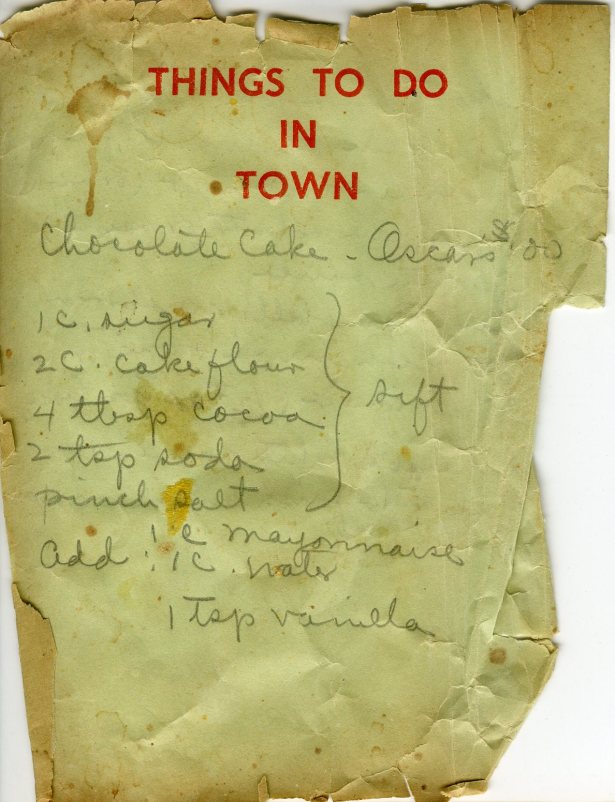 THINGS TO DO
IN
TOWN
Chocolate Cake - Oscar's
1 C. sugar
2 C. cake flour
4 tbsp cocoa
2 tsp soda
pinch salt
sift
1 C mayonnaise
add : 1 C. water
1 tsp vanilla